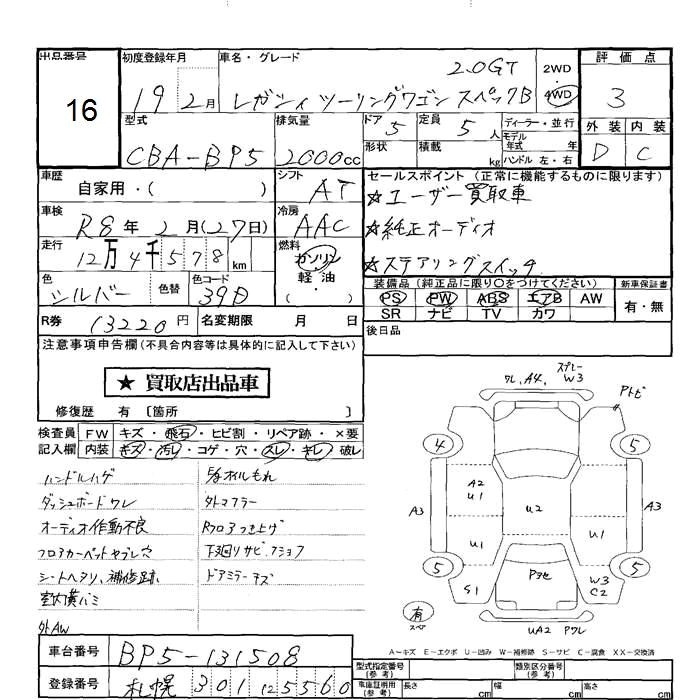 出品番号
16
初度登録年月
19 2月
車名・グレード
2.0GT
レガシィ ツーリングワゴン スペックB
2WD
・
4WD
評価点
3
型式
CBA-BP5
排気量
2000cc
ドア
5
形状
定員
5人
積載
kg
ディーラー・並行
モデル年式 年式
ハンドル 左・右
外装 内装
D C
車歴
自家用・( )
シフト
AT
セールスポイント (正常に機能するものに限ります)
☆ユーザー買取車
☆純正オーディオ
☆ステアリングスイッチ
車検
R8年 2月(27日)
冷房
AAC
走行
12万4千578km
燃料
ガソリン
軽油
( )
色
シルバー
色替
色コード
39D
装備品 (純正品に限り○をつけてください)
PS PW ABS エアB AW
SR ナビ TV カワ
新車保証書
有・無
R券 13220円
名変期限 月 日
後日品
注意事項申告欄(不具合内容等は具体的に記入して下さい)
★ 買取店出品車
修復歴 有 〔箇所 〕
検査員記入欄
FW キズ・飛石・ヒビ割・リペア跡・×要
内装 キズ・汚レ・コゲ・穴・スレ・キレ・破レ
ハンドルハゲ
ダッシュボードワレ
オーディオ作動不良
フロアカーペットヤブレ穴
シートヘタリ、補修跡
室内黄バミ
外AW
オイルもれ
外マフラー
Rフロアつき上げ
下廻りサビ、
ドアミラーキズ
スプレー
ワレ,A4, W3
アトビ
4
5
A2
U1
A3
U2
A3
U1
U1
5
5
S1
Pヨゼ
W3
C2
有
スペア
UA2 Pワレ
A-キズ E-エクボ U-凹み W-補修跡 S-サビ C-腐食 XX-交換済
車台番号
BP5-131508
登録番号
札幌 301 125560
型式指定番号
(参考)
類別区分番号
(参考)
車庫証明用
(参考)
長さ cm
幅 cm
高さ cm